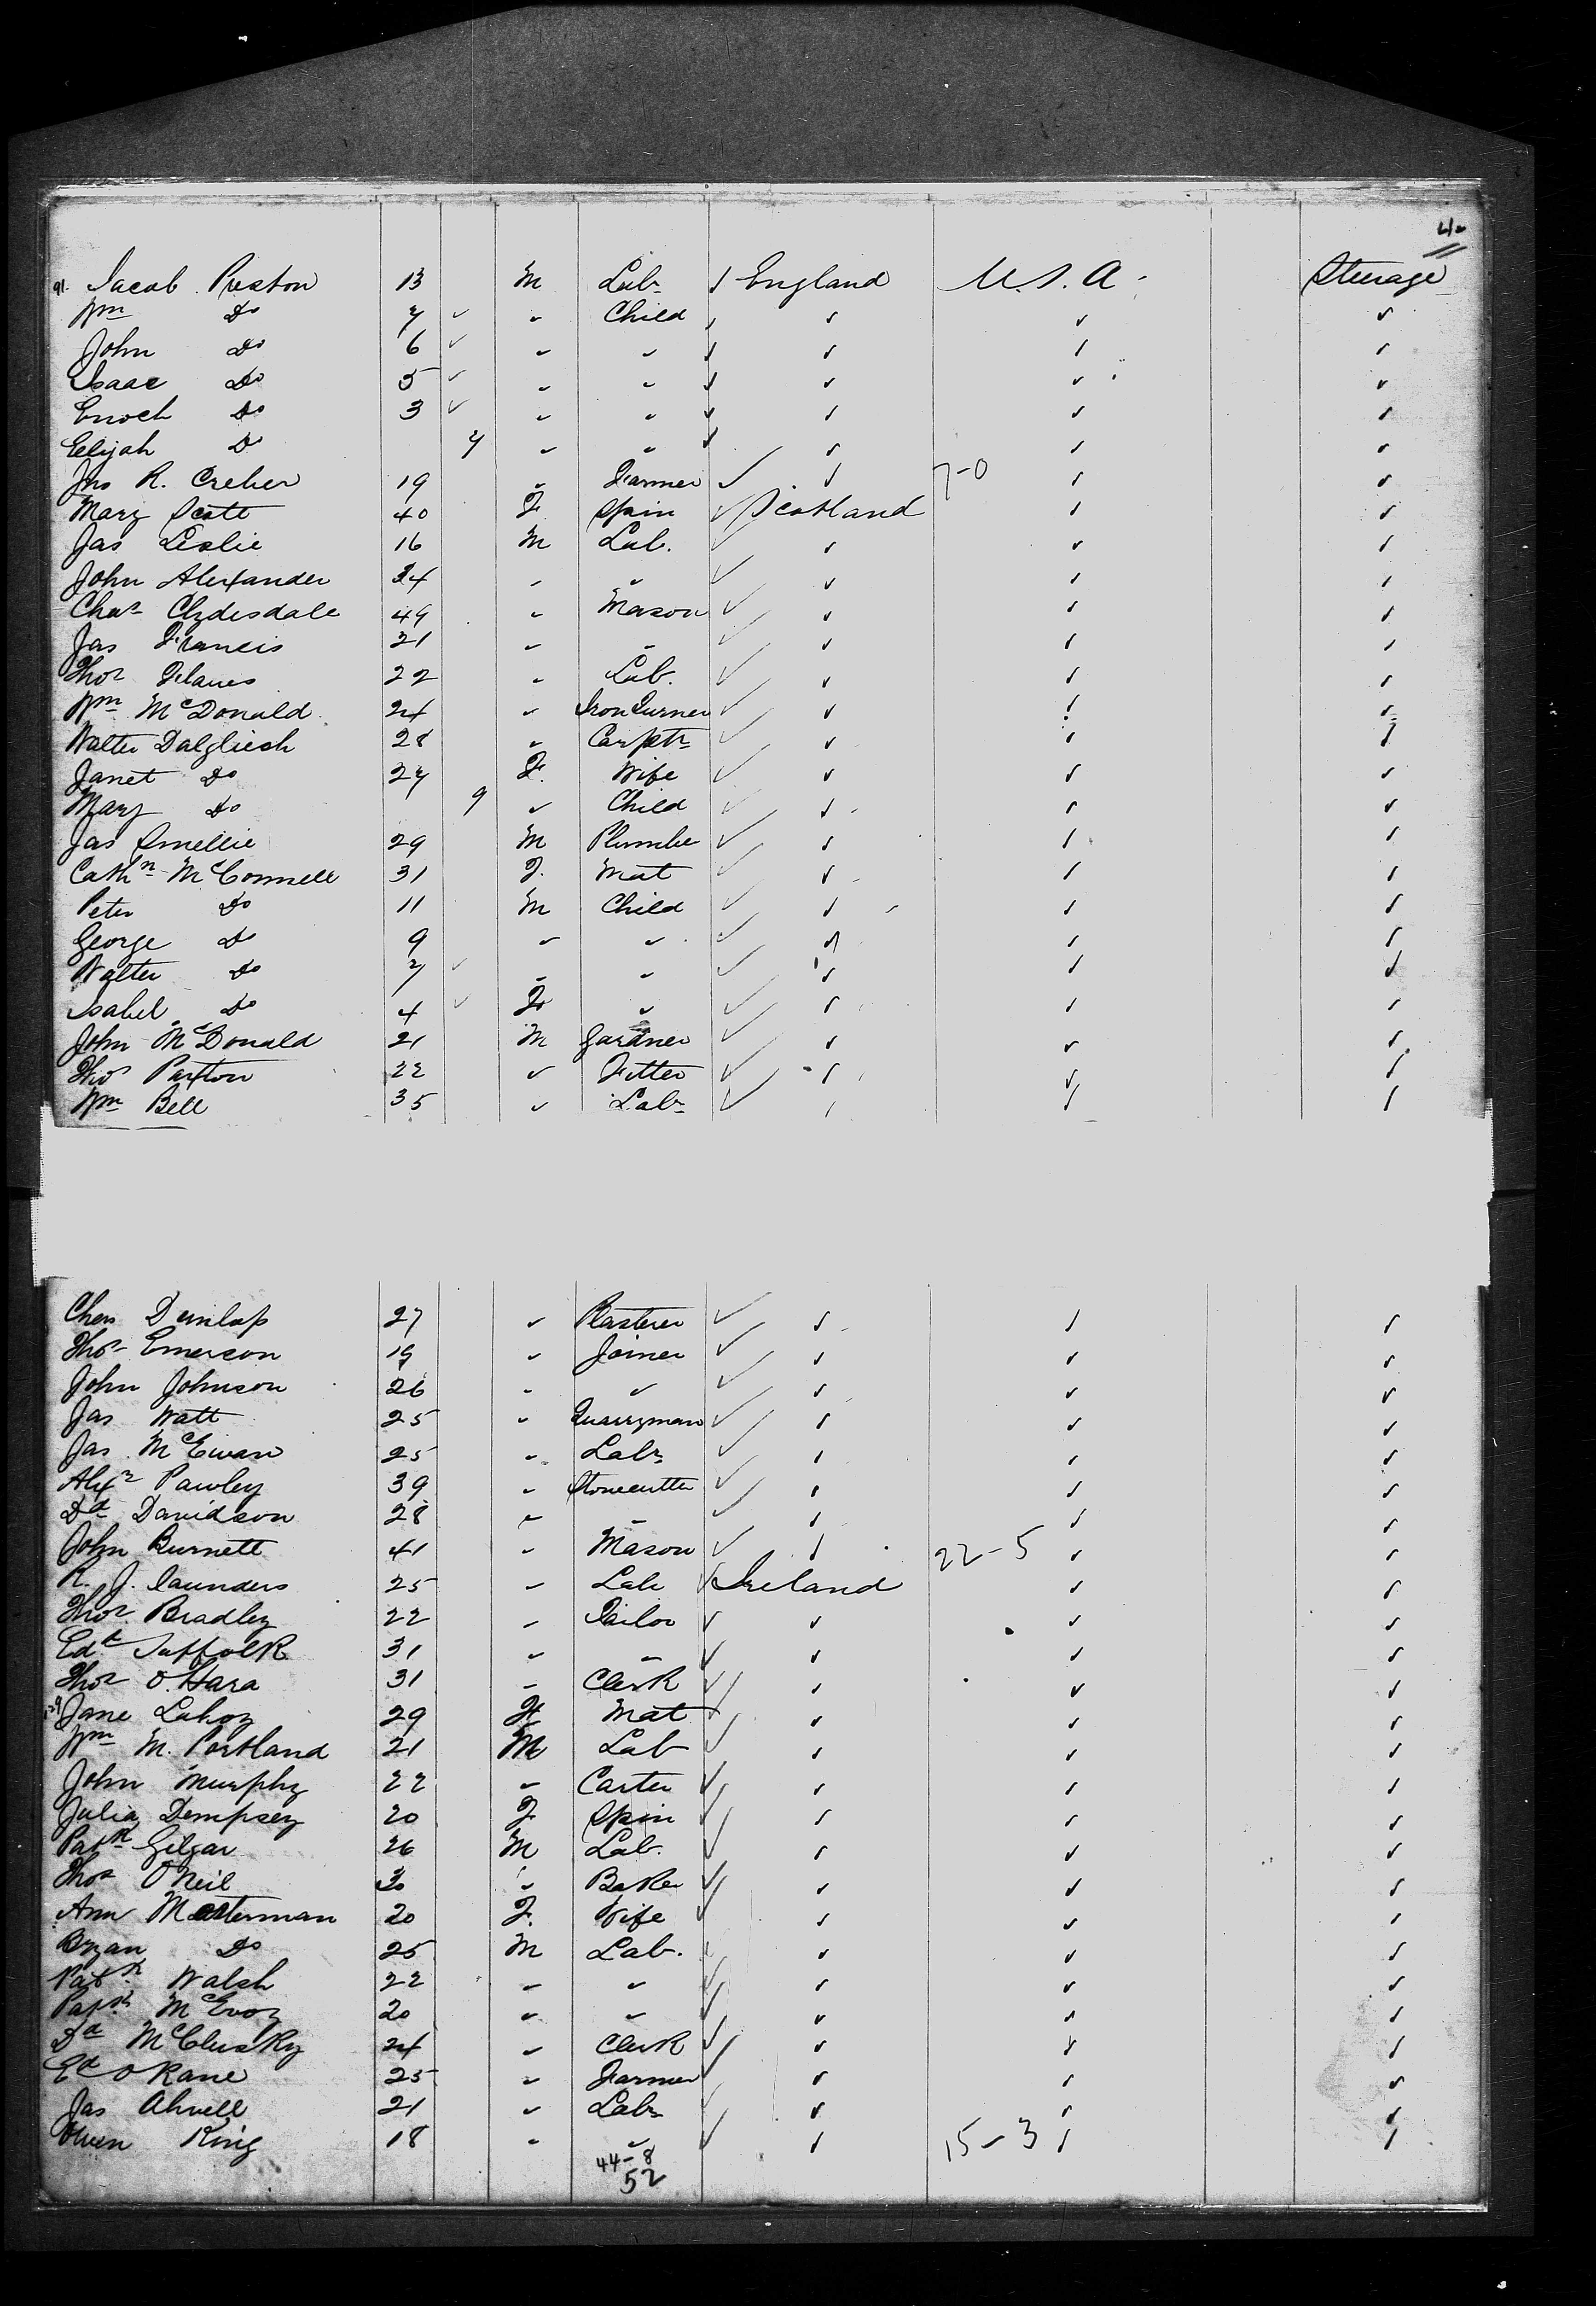 42
91. Jacob Preston 13 M Lab. England U.S.A. Steerage
Wm Do 7 " Child
John Do 6 " "
Isaac Do 5 " "
Enoch Do 3 " "
Elijah Do 7 " "
Jno R. Creber 19 " Farmer 7-0
Mary Scott 40 F Spin Scotland
Jas Leslie 16 M Lab.
John Alexander 24 " "
Chas Clydesdale 49 " Mason
Jas Francis 21 " "
Thos 22 " Lab.
Wm McDonald 24 " Iron Turner
Walter Dalgliesh 28 " Carptr
Janet Do 27 F. Wife
Mary Do 9 " Child
Jas Smellie 29 M Plumber
Cathn McConnell 31 F. Mat
Peter Do 11 M Child
George Do 9 " "
Walter Do 7 " "
Isabel Do 4 F "
John McDonald 21 M Gardner
Thos Paxton 22 " Fitter
Wm Bell 35 " Lab
Chas Dunlop 27 " Plasterer
Thos Emerson 19 " Joiner
John Johnson 26 " "
Jas Watt 25 " Quarryman
Jas McEwan 25 " Labr
Alexr Pawley 39 " Stonecutter
Dd Davidson 28 " "
John Burnett 41 " Mason 22-5
R. J. Saunders 25 " Lab Ireland
Thos Bradley 22 " Tailor
Edd Suffolk 31 " "
Thos O'Hara 31 " Clerk
Jane Lahoy 29 F Mat
Wm M. Portland 21 M Lab
John Murphy 22 " Carter
Julia Dempsey 20 F Spin
Patk Gilgar 26 M Lab.
Thos O'Neil 30 " Baker
Ann Masterman 20 F. Wife
Bryan Do 25 M Lab.
Patk Walsh 22 " "
Patk McEvoy 20 " "
Dd McClusky 24 " Clerk
Ed O'Kane 25 " Farmer
Jas 21 " Labr
Owen King 18 " " 15-3
44-8
52